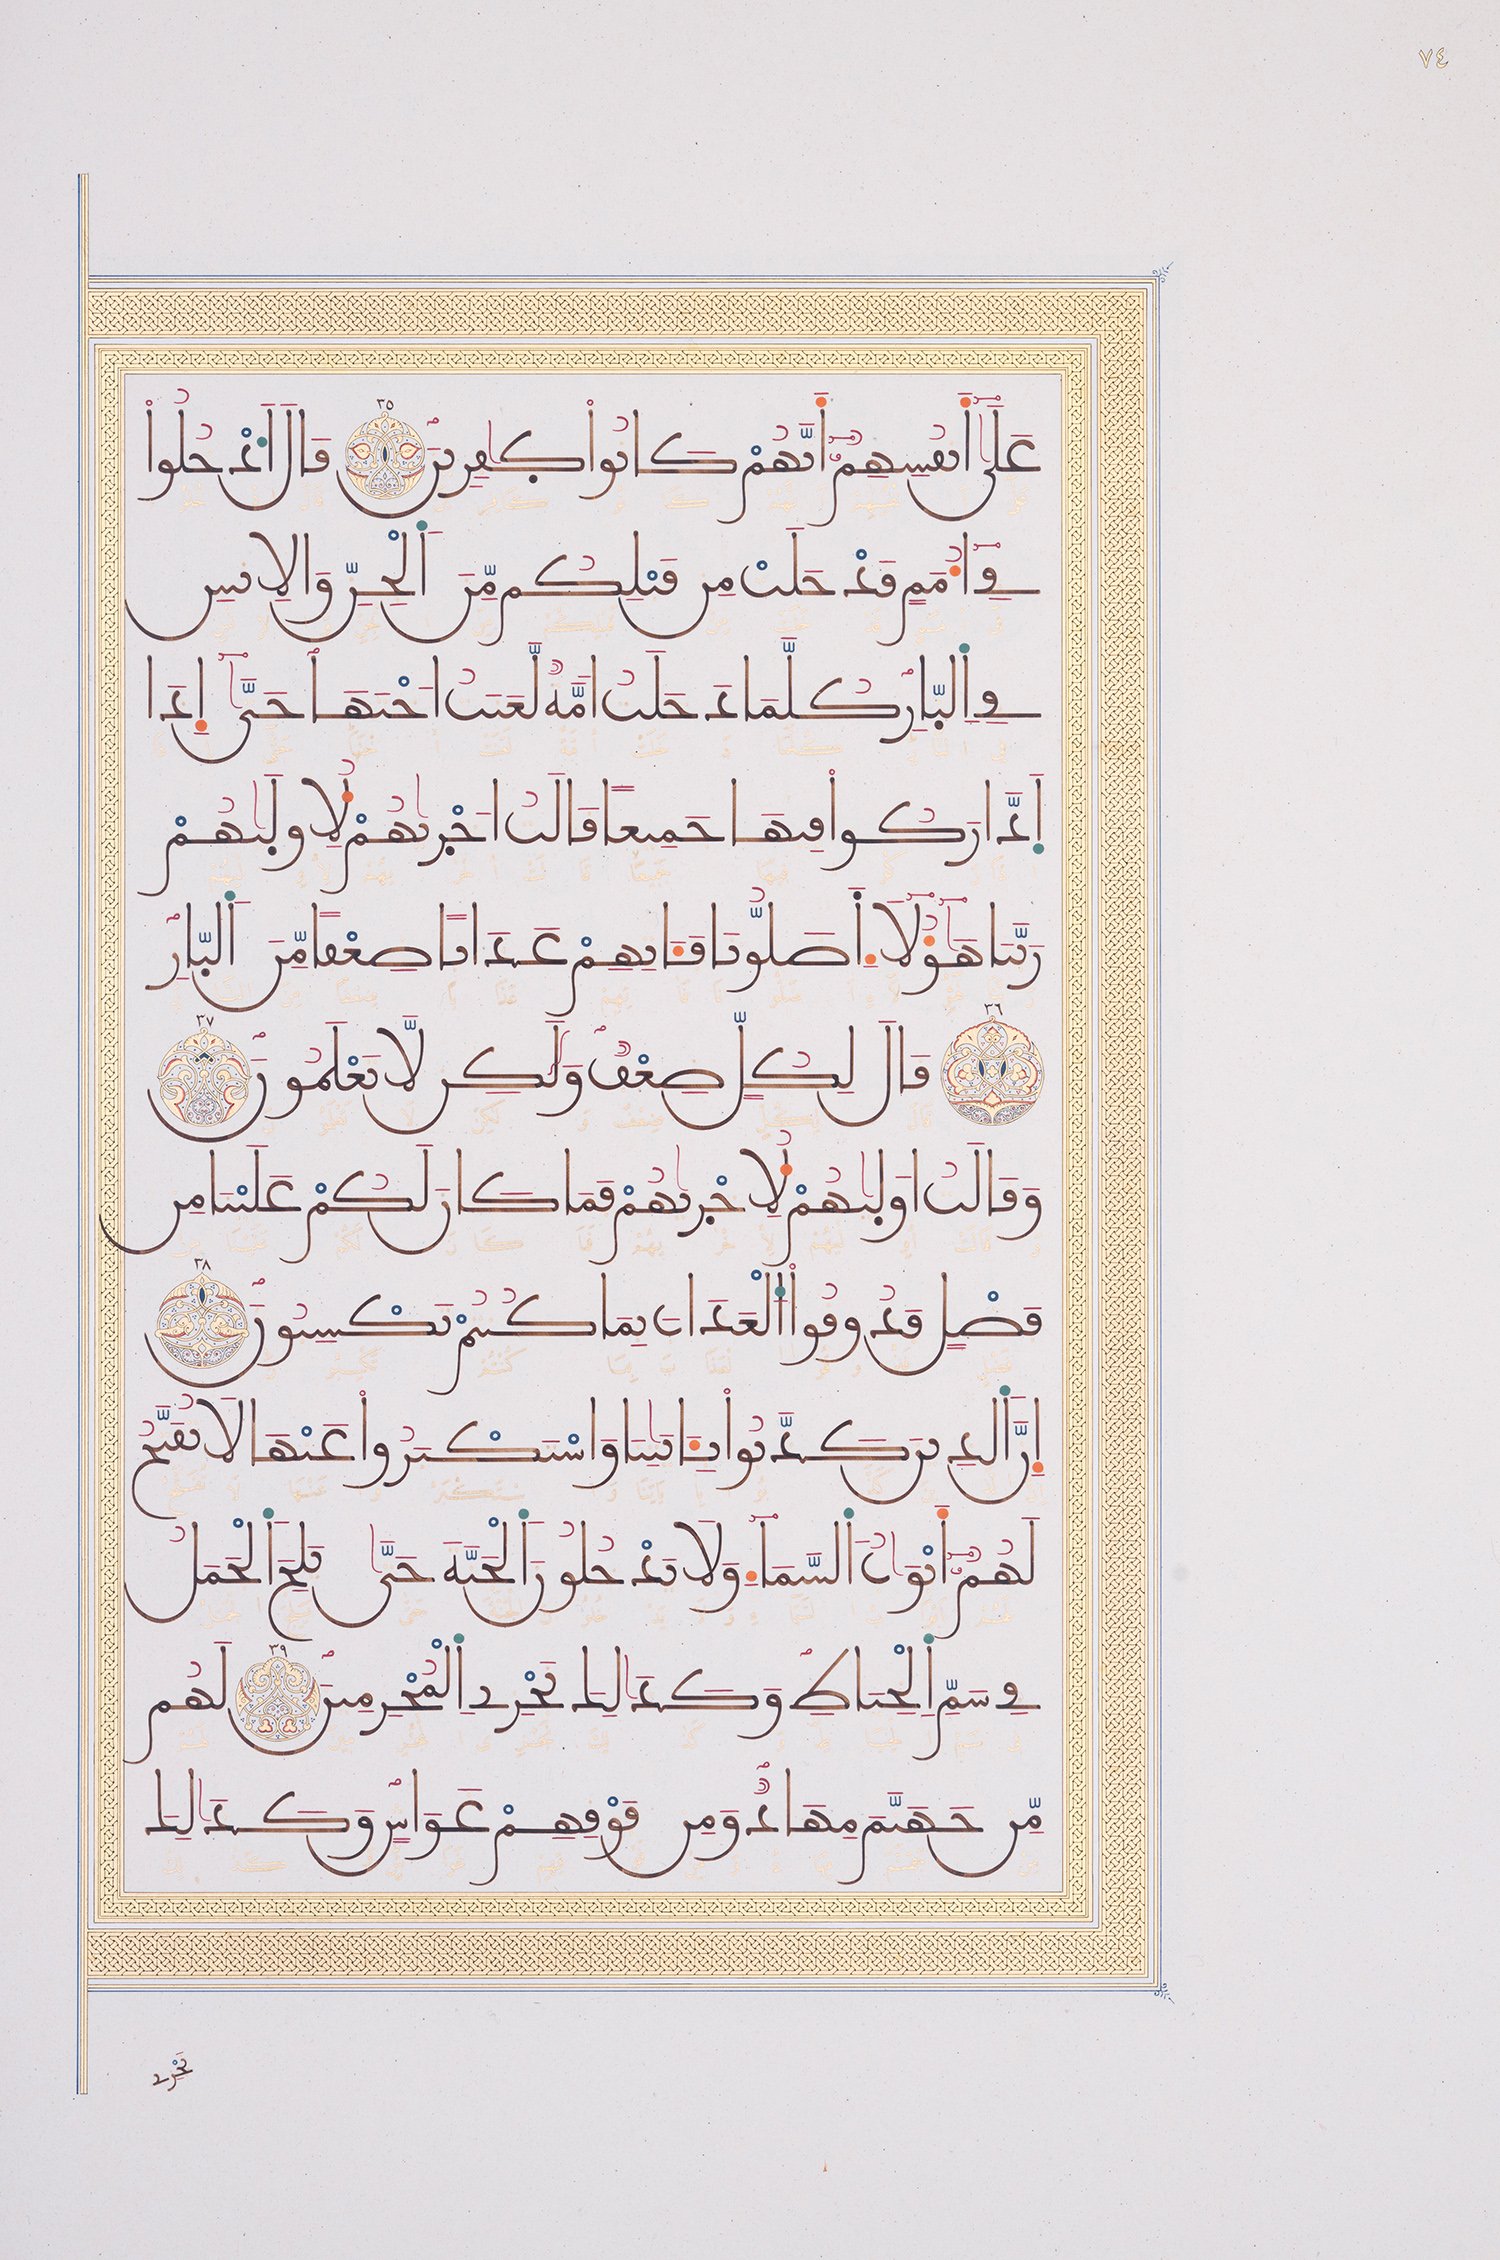 ٧٤
عَلَىٰٓ أَنفُسِهِمُۥٓ أَنَّهُمْ كَانُوا۟ كَٰفِرِينَ ٣٥ قَالَ اَدْخُلُوا۟
فِےٓ أُمَمٍ قَدْ خَلَتْ مِن قَبْلِكُم مِّنَ اَلْجِنِّ وَالِانسِ
فِے اِلنّ۪ارِ كُلَّمَا دَخَلَتُ امَّةٌ لَّعَنَتُ اخْتَهَا حَتَّىٰٓ إِذَا
اَدَّارَكُوا۟ فِيهَا جَمِيعًا قَالَتُ اخْر۪ىٰهُمْ لِأُول۪ىٰهُمْ
رَبَّنَا هَٰٓؤُلَآءِ اَ۬ضَلُّونَا فَـَٔاتِهِمْ عَذَابًا ضِعْفًا مِّنَ اَلنّ۪ارِ
٣٦ قَالَ لِكُلٍّ ضِعْفٌ وَلَٰكِن لَّا تَعْلَمُونَ ٣٧
وَقَالَتُ اول۪ىٰهُمْ لِأُخْر۪ىٰهُمْ فَمَا كَانَ لَكُمْ عَلَيْنَا مِن
فَضْلٍ فَذُوقُوا۟ اُلْعَذَابَ بِمَا كُنتُمْ تَكْسِبُونَ ٣٨
إِنَّ اَلذِينَ كَذَّبُوا۟ بِـَٔايَٰتِنَا وَاسْتَكْبَرُوا۟ عَنْهَا لَا تُفَتَّحُ
لَهُمُۥٓ أَبْوَٰبُ اُلسَّمَآءِ وَلَا يَدْخُلُونَ اَلْجَنَّةَ حَتَّىٰ يَلِجَ اَلْجَمَلُ
فِے سَمِّ اِلْخِيَاطِ وَكَذَٰلِكَ نَجْزِے اِلْمُجْرِمِينَ ٣٩ لَهُم
مِّن جَهَنَّمَ مِهَادٌ وَمِن فَوْقِهِمْ غَوَاشٍ وَكَذَٰلِكَ
نَجْزِے